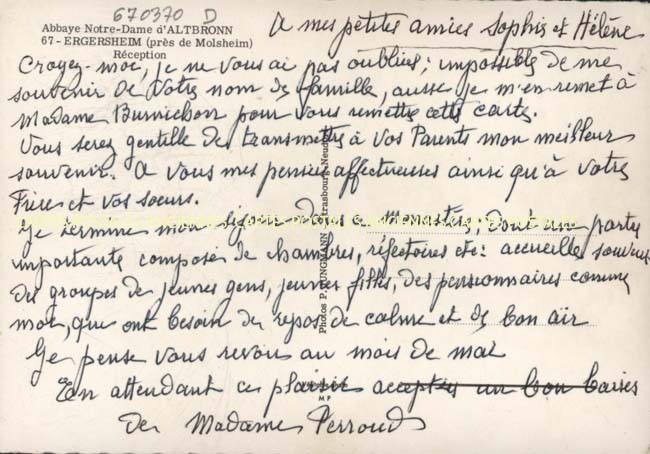 670370 D
Abbaye Notre-Dame d'ALTBRONN
67 - ERGERSHEIM (près de Molsheim)
Réception
A mes petites amies Sophie et Hélène
Croyez-moi, je ne vous ai pas oubliées; impossible de me
souvenir de votre nom de famille, aussi je m'en remet à
Madame pour vous remettre cette carte.
Vous serez gentille de transmettre à vos Parents mon meilleur
souvenir. A vous mes pensées affectueuses ainsi qu'à votre
Frère et vos sœurs.
Je termine mon séjour dans ce Monastère, dont une partie
importante composée de chambres, réfectoires etc: accueille souvent
des groupes de jeunes gens, jeunes filles, des pensionnaires comme
moi, qui ont besoin de repos de calme et de bon air
Je pense vous revoir au mois de mai
En attendant ce plaisir acceptez un bon baiser
de Madame Perroud
Photos P. Strasbourg-Neudorf
MP